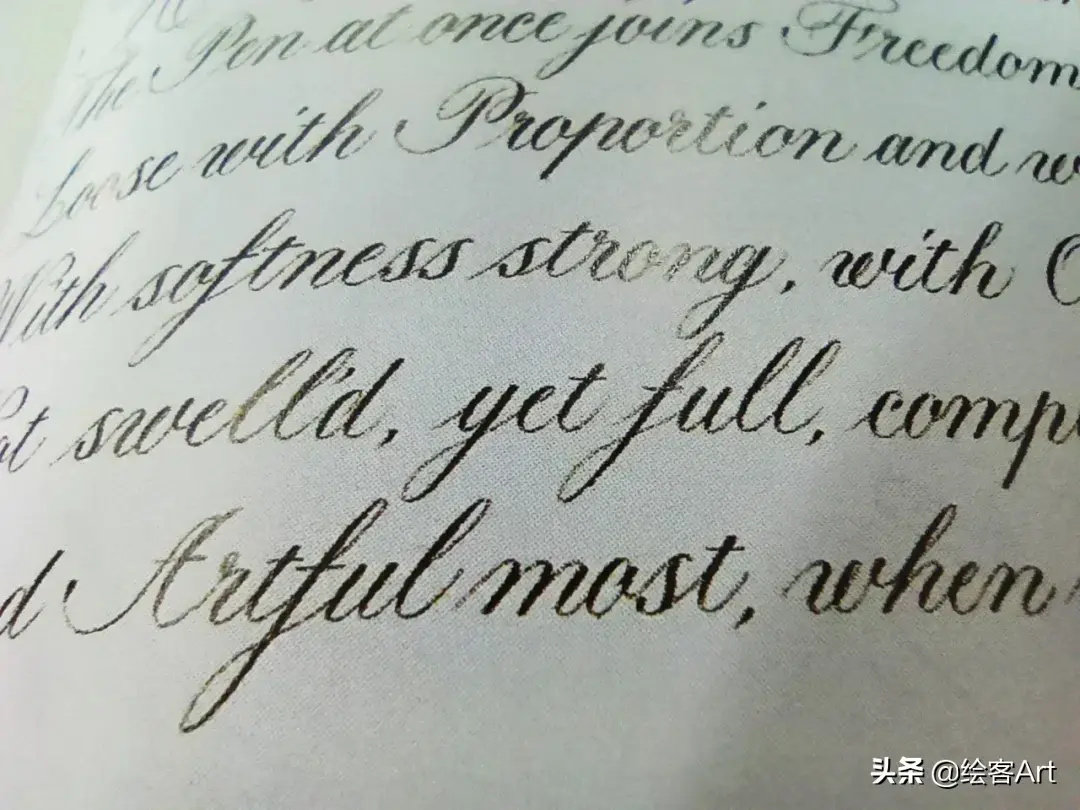 The Pen at once joins Freedom
Loose with Proportion and
With softness strong, with
swell'd, yet full,
Artful most, when
头条 @绘客Art